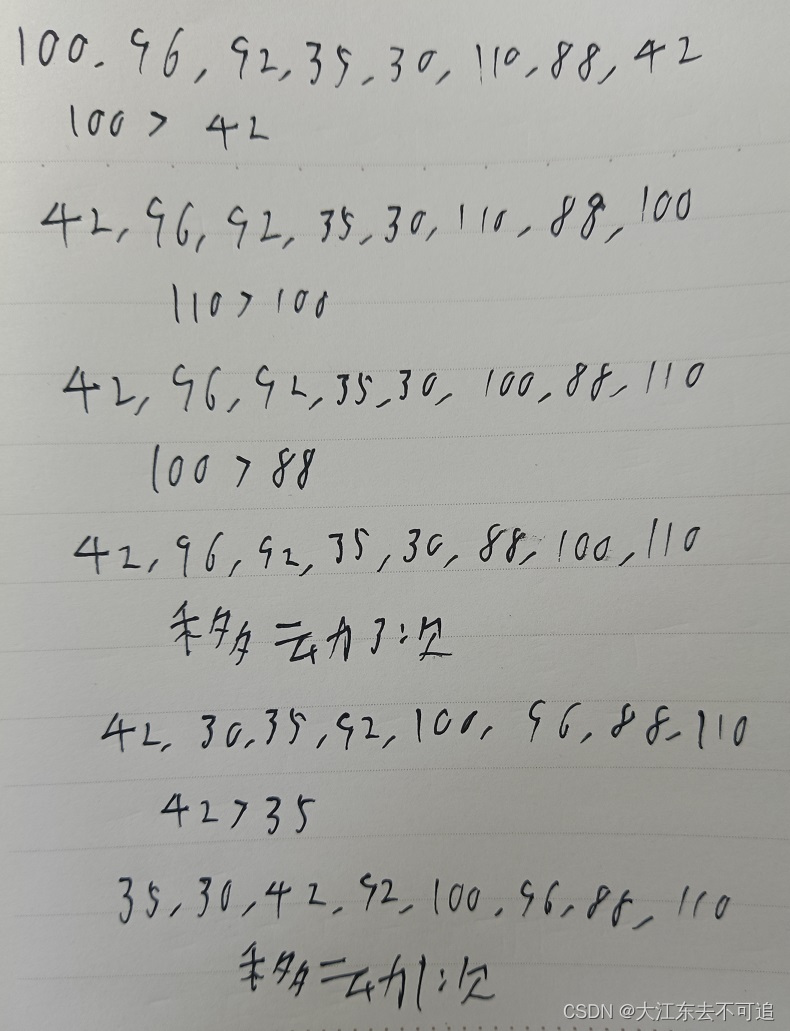 100. 96, 92, 35, 30, 110, 88, 42
100 > 42
42, 96, 92, 35, 30, 110, 88, 100
110 > 100
42, 96, 92, 35, 30, 100, 88, 110
100 > 88
42, 96, 92, 35, 30, 88, 100, 110
移动了3次
42, 30, 35, 92, 100, 96, 88, 110
42 > 35
35, 30, 42, 92, 100, 96, 88, 110
移动1次
CSDN @大江东去不可追